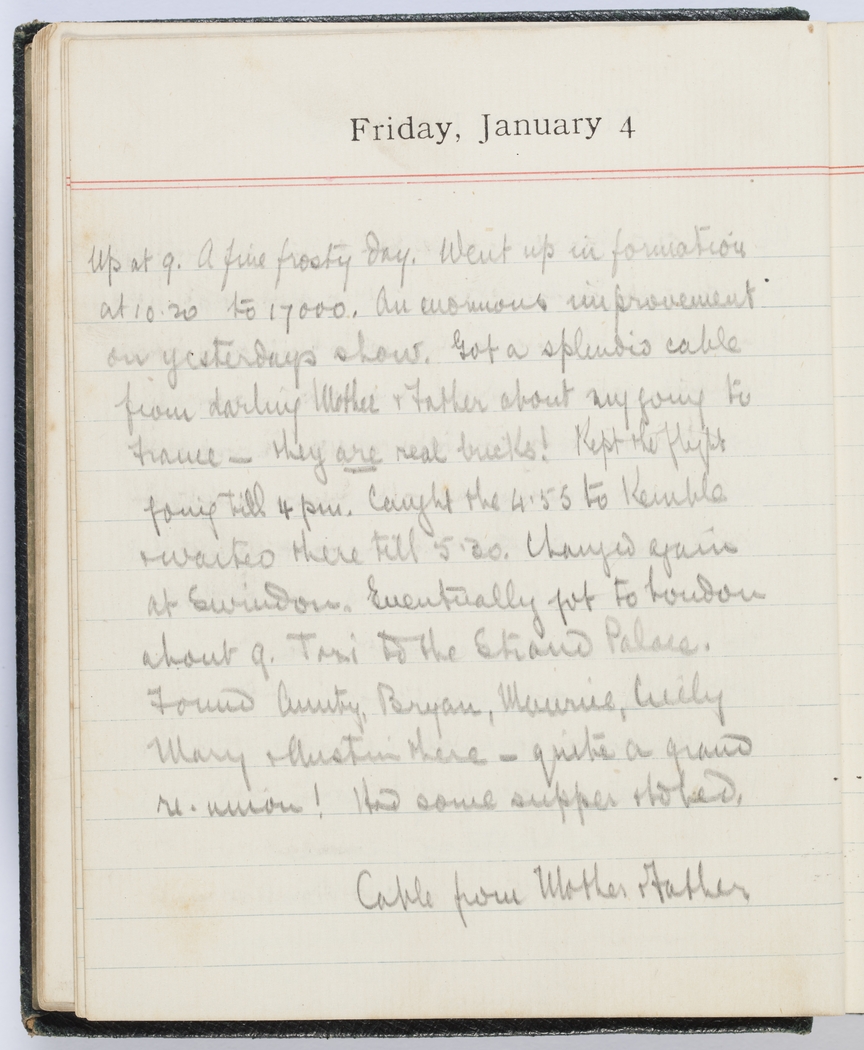 Friday, January 4
Up at 9. A fine frosty day. Went up in formation
at 10.20 to 17000. An enormous improvement
on yesterdays show. Got a splendid cable
from darling Mother & Father about my going to
France — they are real bricks! Kept the flight
going till 4 pm. Caught the 4.55 to Kemble
& waited there till 5.30. Changed again
at Swindon. Eventually got to London
about 9. Taxi to the Strand Palace.
Found Aunty, Bryan, Cicily
Mary & Austin there — quite a grand
re-union! Had some supper & to bed.
Cable from Mother & Father